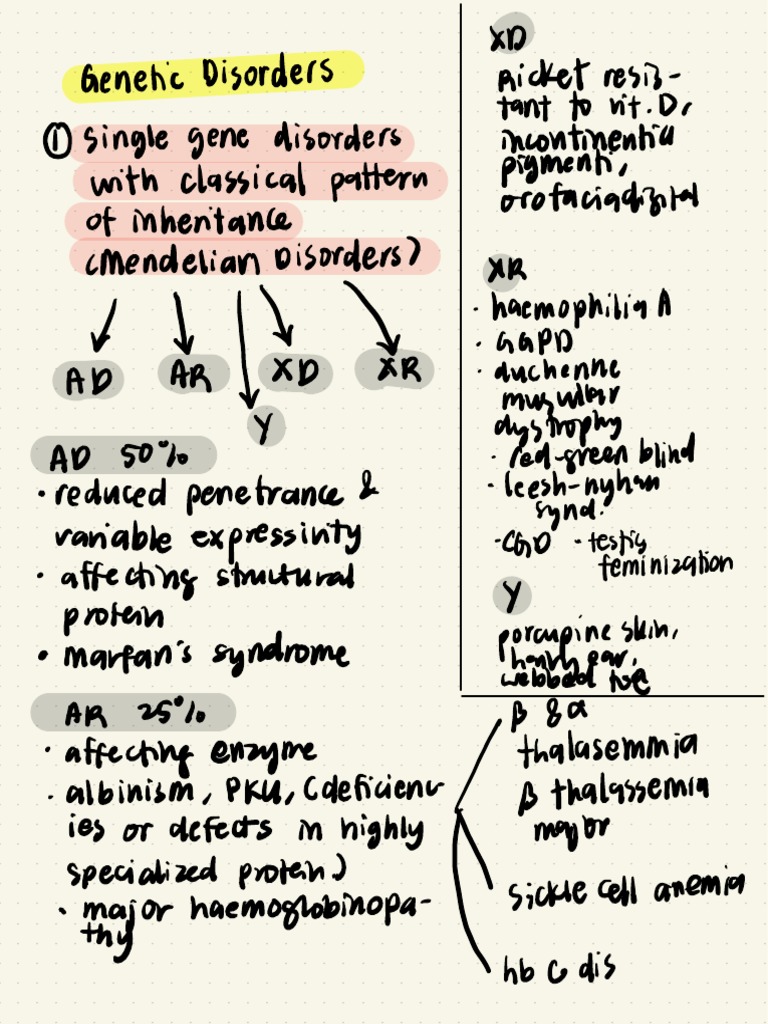 Genetic Disorders
① single gene disorders
with classical pattern
of inheritance
(Mendelian Disorders)
AD AR XD XR
Y
AD 50%
• reduced penetrance &
variable expressivity
• affecting structural
protein
• marfan's syndrome
AR 25%
• affecting enzyme
• albinism, PKU, (deficienc-
ies or defects in highly
specialized protein)
• major haemoglobinopa-
thy
XD
Ricket resis-
tant to vit. D,
incontinentia
pigmenti,
orofaciadigital
XR
• haemophilia A
• G6PD
• duchenne
muscular
dystrophy
• red-green blind
• leesh-nyhan
synd.
• CGD • testis
feminization
Y
porcupine skin,
ear,
webbed toe
β & α
thalasemmia
β thalassemia
major
sickle cell anemia
hb C dis